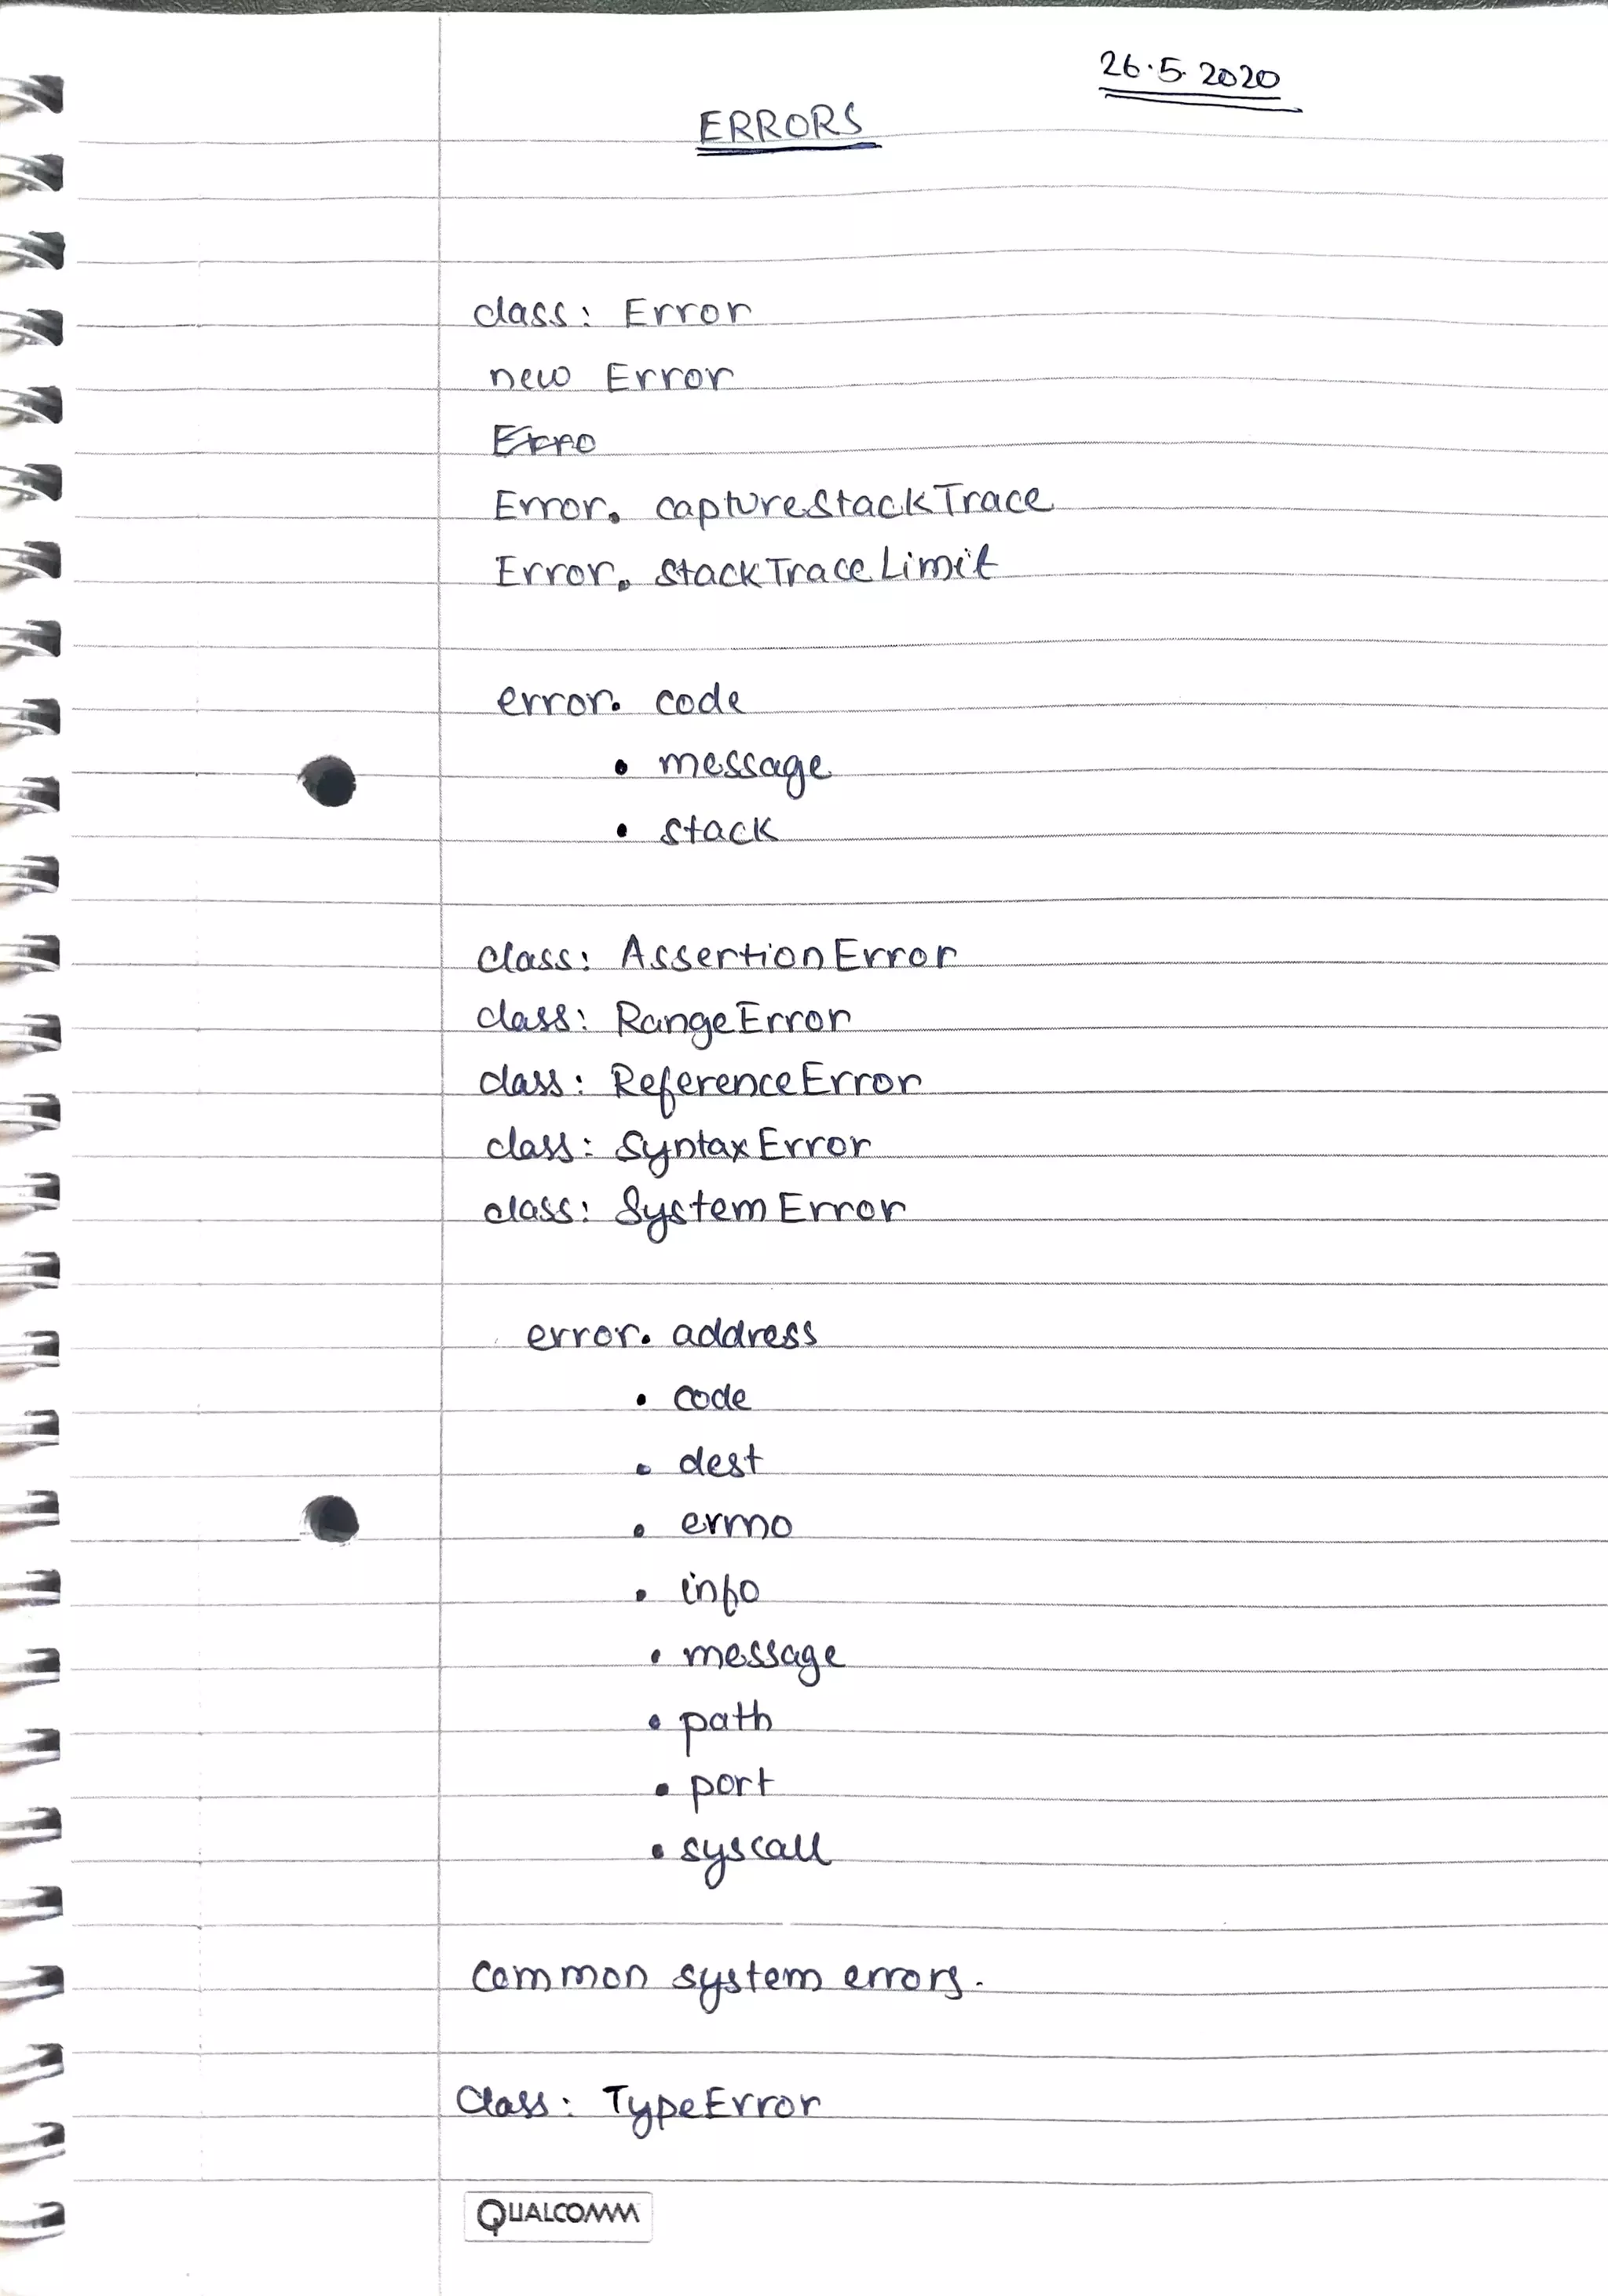 26.5.2020
ERRORS
class: Error
new Error
Erro
Error. captureStackTrace
Error. stackTraceLimit
error. code
• message
• stack
class: AssertionError
class: RangeError
class: ReferenceError
class: SyntaxError
class: SystemError
error. address
• code
• dest
• errno
• info
• message
• path
• port
• syscall
Common system errors.
Class: TypeError
QUALCOMM